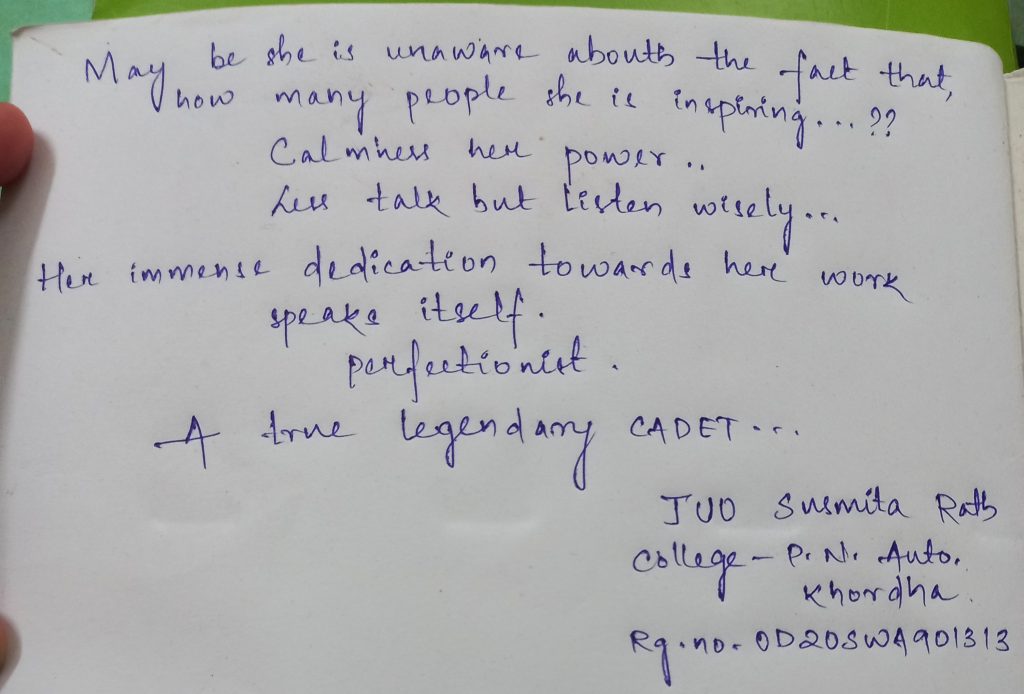 May be she is unaware abouth the fact that,
how many people she is inspiring... ??
Calmness here power ..
Less talk but listen wisely...
Her immense dedication towards here work
speaks itself.
perfectionist .
A true legendary CADET ...
JUO Susmita Rath
College - P. N. Auto.
Khordha.
Rg. no. OD20SWA901313